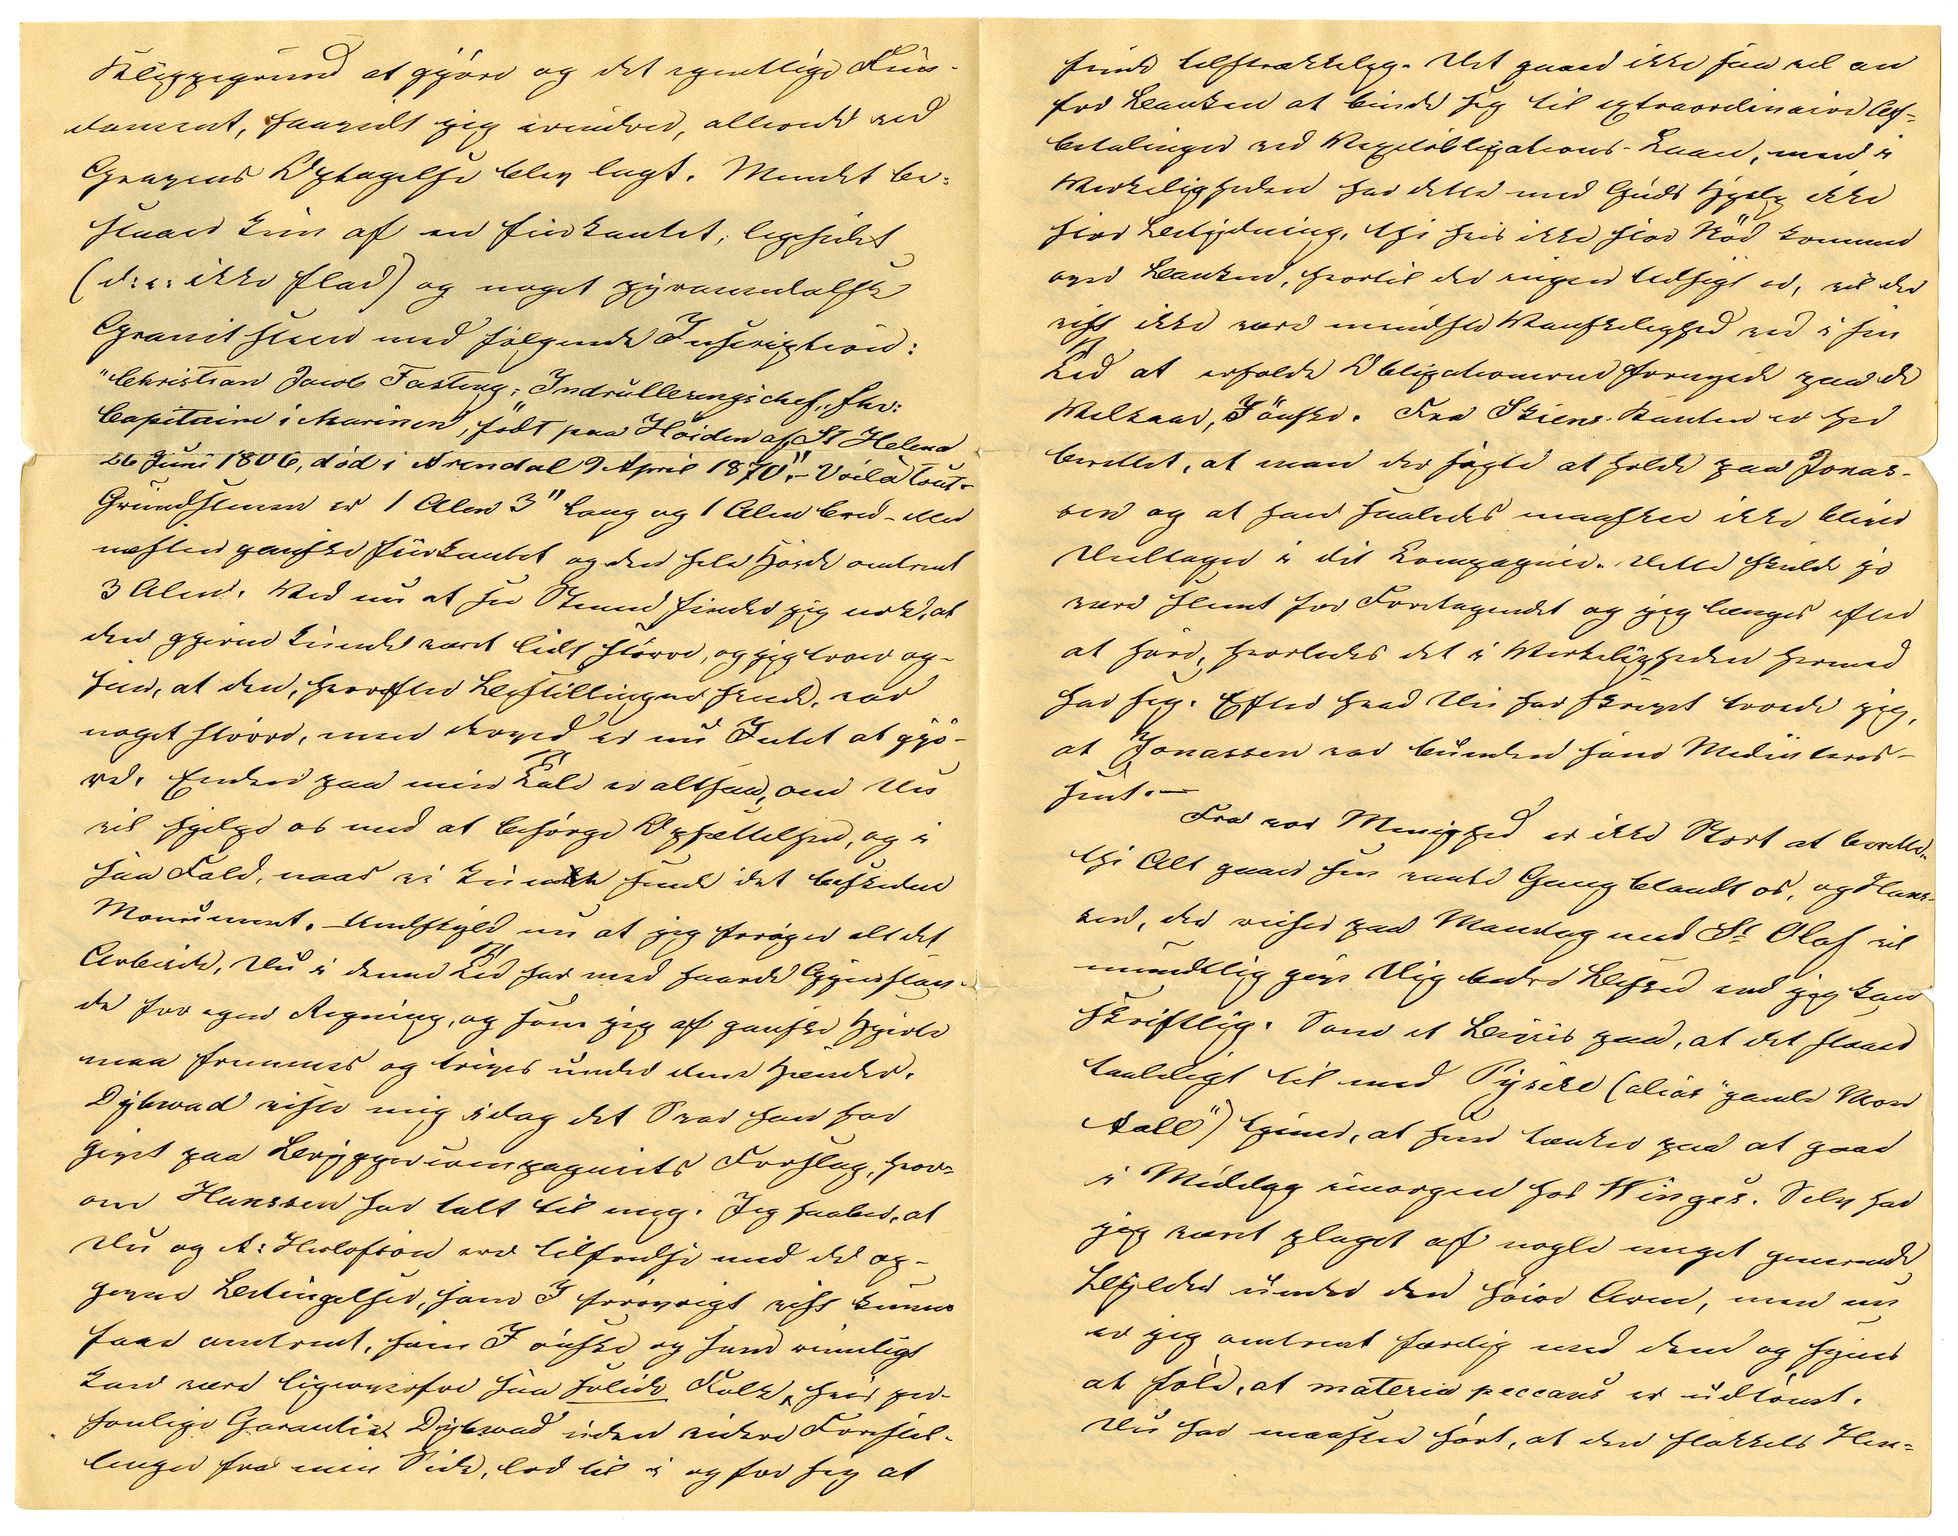 Klippegrund at gjøre og det egentlige Fun-
dament, saavidt jeg erindrer, allerede ved
Gravens Optagelse blev lagt. Mindet be-
staaer kun af en firkantet, ligesidet
(d:v: ikke flad) og noget pyramidalsk
Granitsteen med følgende Inscription:
"Christian Jacob Fasting, Indrulleringschef, fhv:
Capitaine i Marinen, født paa Høiden af St Helena
26 Juni 1806, død i Arendal 9 April 1870". – Voila tout.
Grundstenen er 1 Alen 3" lang og 1 Alen bred – altsaa
næsten ganske firkantet og den hele Høide omtrent
3 Alen. Ved nu at see Stenen finder jeg nok, at
den gjerne kunde været lidt større, og jeg troer og-
saa, at den, hvorefter Bestillingen skede, var
noget større, men derved er nu Intet at gjø-
re. Enden paa min Tale er altsaa, om Du
vil hjelpe os med at besørge Opsættelsen, og i
saa Fald, naar vi kunde sende det beskedne
Monument. – Undskyld nu at jeg forøger alt det
Arbeide, Du i denne Tid har med haarde Gjenstan-
de for egen Regning, og som jeg af ganske Hjerte
maa fremmes og trives under dine Hænder.
Dybwad viste mig idag det Svar han har
givet paa Bryggericompagniets Forslag, hvor-
om Hanssen har talt til mig. Jeg haaber, at
Du og A: Herlofson ere tilfredse med de op-
givne Betingelser, som I forøvrigt vist kunne
faae omtrent, som I ønske og som rimeligt
kan være ligeoverfor saa solide Folk, hvis per-
sonlige Garantier Dybwad uden videre Forestil-
linger fra min Side, lod til i og for sig at
finde tilstrækkelig. Det gaaer ikke saa vel an
for Banken at binde sig til extraordinaire Af-
betalinger ved Vexelobligations-Laan, men i
Virkeligheden har dette med Guds Hjelp ikke
stor Betydning, thi hvis ikke stor Nød kommer
over Banken, hvortil der ingen Udsigt er, vil der
vist ikke være mindste Vanskelighed ved i sin
Tid at erholde Obligationerne fornyede paa de
Vilkaar, I ønske. Fra Skiens-Kanten er her
berettet, at man der søgte at holde paa Jonas-
sen og at han saaledes maaskee ikke bliver
Deeltager i dit Compagnie. Dette skulde jo
være slemt for Foretagendet og jeg længes efter
at høre, hvorledes det i Virkeligheden hermed
har sig. Efter hvad Du har skrevet troede jeg,
at Jonassen var bunden som Medinteres-
sent. –
Fra vor Menighed er ikke Stort at berette,
thi Alt gaaer sin vante Gang blandt os, og Hans-
sen, der reiser paa Mandag med St Olaf vil
mundtlig give Dig bedre Besked end jeg kan
skriftlig. Som et Beviis paa, at det staaer
taaleligt til med (alias "gamle Mor
Aall") tjener, at hun tænker paa at gaae
i Middag imorgen hos Winges. Selv har
jeg været plaget af nogle meget generende
Bylder under den høire Arm, men nu
er jeg omtrent færdig med dem og synes
at føle, at materia peccans er udtømt.
Du har maaskee hørt, at den stakkels Hen-